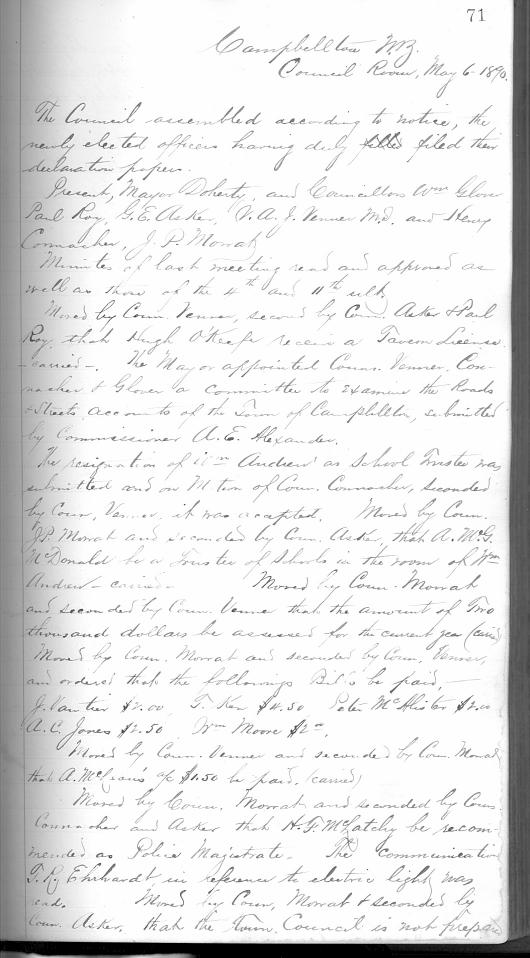 71
Campbellton N.B.
Council Room, May 6 1890.
The Council assembled according to notice, the
newly elected officers having duly filled filed their
declaration papers.
Present, Mayor Doherty, and Councillors Wm Glover
Paul Roy, G. E. Asker, V. A. J. Venner M.D. and Henry
Connacher, J. P. Mowat
Minutes of last meeting read and approved as
well as those of the 4th and 11th ult.
Moved by Coun. Venner, second by Coun. Asker & Paul
Roy, that Hugh O'Keefe receive a Tavern License
- carried -. The Mayor appointed Couns. Venner, Con-
nacher & Glover a committee to examine the Roads
& Streets accounts of the Town of Campbellton, submitted
by Commissioner A. E. Alexander.
The resignation of Wm Andrew as School Trustee was
submitted and on Motion of Coun. Connacher, seconded
by Coun. Venner, it was accepted. Moved by Coun.
J.P. Mowat and seconded by Coun. Asker, that A. McG.
McDonald be a Trustee of Schools in the room of Wm
Andrew - carried - Moved by Coun. Mowat
and seconded by Coun. Venner that the amount of Two
thousand dollars be assessed for the current year (carried
Moved by Coun. Mowat and seconded by Coun. Venner,
and ordered that the followings Bill's be paid, -
J. Vautier $2.00, T. Ker $4.50 Peter McAlister $2.00
A. C. Jones $2.50, Wm Moore $2
Moved by Coun. Venner and seconded by Coun. Mowat
that A. McLean's a/c $1.50 be paid. (carried)
Moved by Coun. Mowat, and seconded by Couns.
Connacher and Asker that H. F. McLatchy be recom-
mended as Police Magistrate. The communication
T. R. Ehrhardt in reference to electric light was
read. Moved by Coun. Mowat & seconded by
Coun. Asker, that the Town Council is not prepare